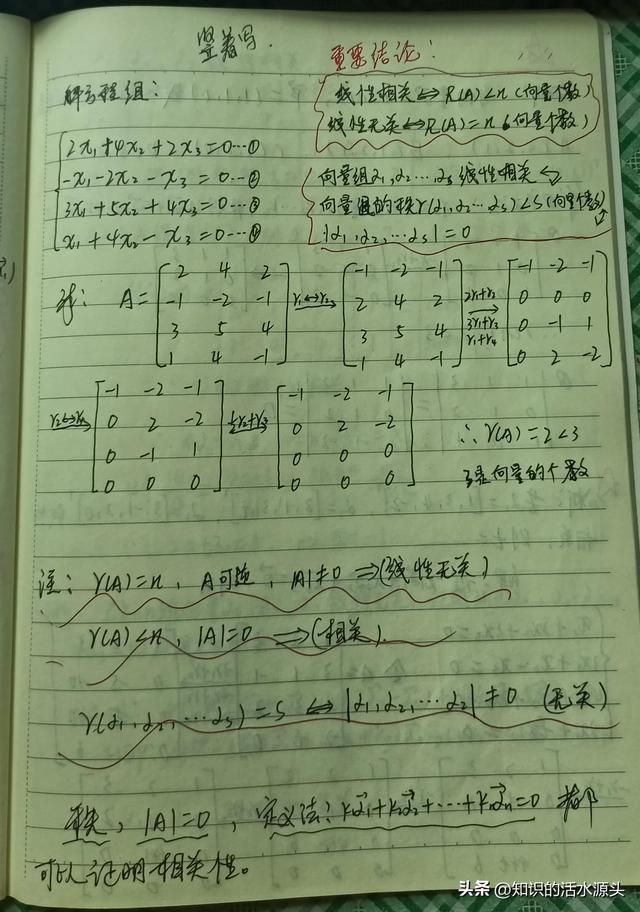 竖着写.
重要结论:
解方程组:
线性相关⇔R(A)<n(向量个数)
线性无关⇔R(A)=n(向量个数)
2x₁+4x₂+2x₃=0…①
-x₁-2x₂-x₃=0…②
3x₁+5x₂+4x₃=0…③
x₁+4x₂-x₃=0…④
向量组α₁,α₂…,αs线性相关⇔
向量组的秩r(α₁,α₂…αs)<s(向量个数)
⇔|α₁,α₂,…αs|=0
A= [2 4 2; -1 -2 -1; 3 5 4; 1 4 -1] r₁↔r₂ [-1 -2 -1; 2 4 2; 3 5 4; 1 4 -1] 2r₁+r₂ 3r₁+r₃ r₁+r₄ → [-1 -2 -1; 0 0 0; 0 -1 1; 0 2 -2]
r₂↔r₄ [-1 -2 -1; 0 2 -2; 0 -1 1; 0 0 0] ½r₂+r₃ [-1 -2 -1; 0 2 -2; 0 0 0; 0 0 0]
∴r(A)=2<3
3是向量的个数
注: r(A)=n, A可逆, |A|≠0 ⇒(线性无关)
r(A)<n, |A|=0 ⇒(相关).
r(α₁,α₂,…αs)=s ⇔ |α₁,α₂,…αs|≠0 (无关)
|A|=0, 定义法: k₁α₁+k₂α₂+…+kₙαₙ=0 都
可以证明相关性。
头条 @知识的活水源头